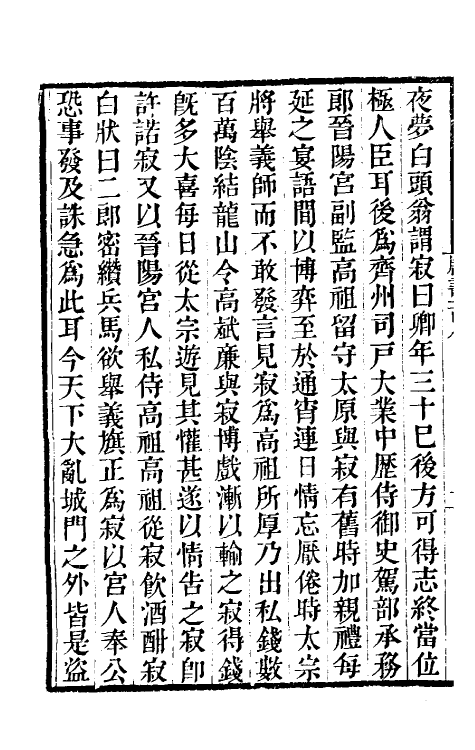 夜夢白頭翁謂寂曰卿年三十已後方可得志終當位
極人臣耳後爲齊州司戶大業中歷侍御史駕部承務
郎晉陽宮副監高祖留守太原與寂有舊時加親禮每
延之宴語間以博弈至於通宵連日情忘厭倦時太宗
將舉義師而不敢發言見寂爲高祖所厚乃出私錢數
百萬陰結龍山令高斌廉與寂博戲漸以輸之寂得錢
旣多大喜每日從太宗遊見其懽甚遂以情告之寂卽
許諾寂又以晉陽宮人私侍高祖高祖從寂飲酒酣寂
白狀曰二郎密纘兵馬欲舉義旗正為寂以宮人奉公
恐事發及誅急爲此耳今天下大亂城門之外皆是盜